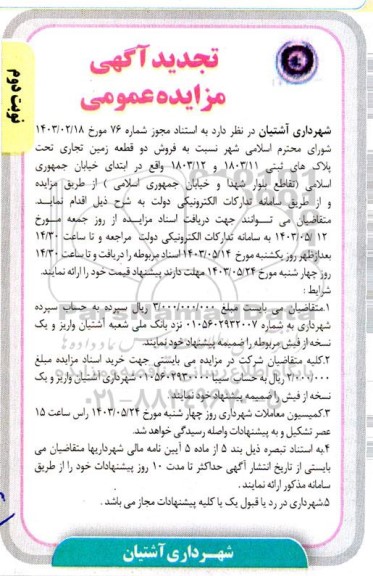 تجدید آگهی
مزایده عمومی
نوبت دوم
شهرداری آشتیان در نظر دارد به استناد مجوز شماره ۷۶ مورخ ۱۴۰۳/۰۲/۱۸
شورای محترم اسلامی شهر نسبت به فروش دو قطعه زمین تجاری تحت
پلاک های ثبتی ۱۸۰۳/۱۱ و ۱۸۰۳/۱۲ واقع در ابتدای خیابان جمهوری
اسلامی (تقاطع بلوار شهدا و خیابان جمهوری اسلامی ) از طریق مزایده
و از طریق سامانه تدارکات الکترونیکی دولت به شرح ذیل اقدام نماید.
متقاضیان می توانند جهت دریافت اسناد مزایده از روز جمعه مورخ
۱۴۰۳/۰۵/۱۲ به سامانه تدارکات الکترونیکی دولت مراجعه و تا ساعت ۱۴/۳۰
بعدازظهر روز یکشنبه مورخ ۱۴۰۳/۰۵/۱۴ اسناد مربوطه را دریافت و تا ساعت ۱۴/۳۰
روز چهار شنبه مورخ ۱۴۰۳/۰۵/۲۴ مهلت دارند پیشنهاد قیمت خود را ارائه نمایند.
شرایط :
۱.متقاضیان می بایست مبلغ ۳/۰۰۰/۰۰۰/۰۰۰ ریال سپرده به حساب سپرده
شهرداری به شماره ۰۱۰۵۶۰۲۹۳۲۰۰۷ نزد بانک ملی شعبه آشتیان واریز و یک
نسخه از فیش مربوطه را ضمیمه پیشنهاد خود نمایند.
۲.کلیه متقاضیان شرکت در مزایده می بایستی جهت خرید اسناد مزایده مبلغ
ریال به حساب سیبا شهرداری آشتیان واریز و یک
نسخه از فیش را ضمیمه پیشنهاد خود نمایند.
۳.کمیسیون معاملات شهرداری روز چهار شنبه مورخ ۱۴۰۳/۰۵/۲۴ راس ساعت ۱۵
عصر تشکیل و به پیشنهادات واصله رسیدگی خواهد شد.
۴.به استناد تبصره ذیل بند ۵ از ماده ۵ آیین نامه مالی شهرداریها متقاضیان می
بایستی از تاریخ انتشار آگهی حداکثر تا مدت ۱۰ روز پیشنهادات خود را از طریق
سامانه مذکور ارائه نمایند .
۵.شهرداری در رد یا قبول یک یا کلیه پیشنهادات مجاز می باشد .
شهرداری آشتیان